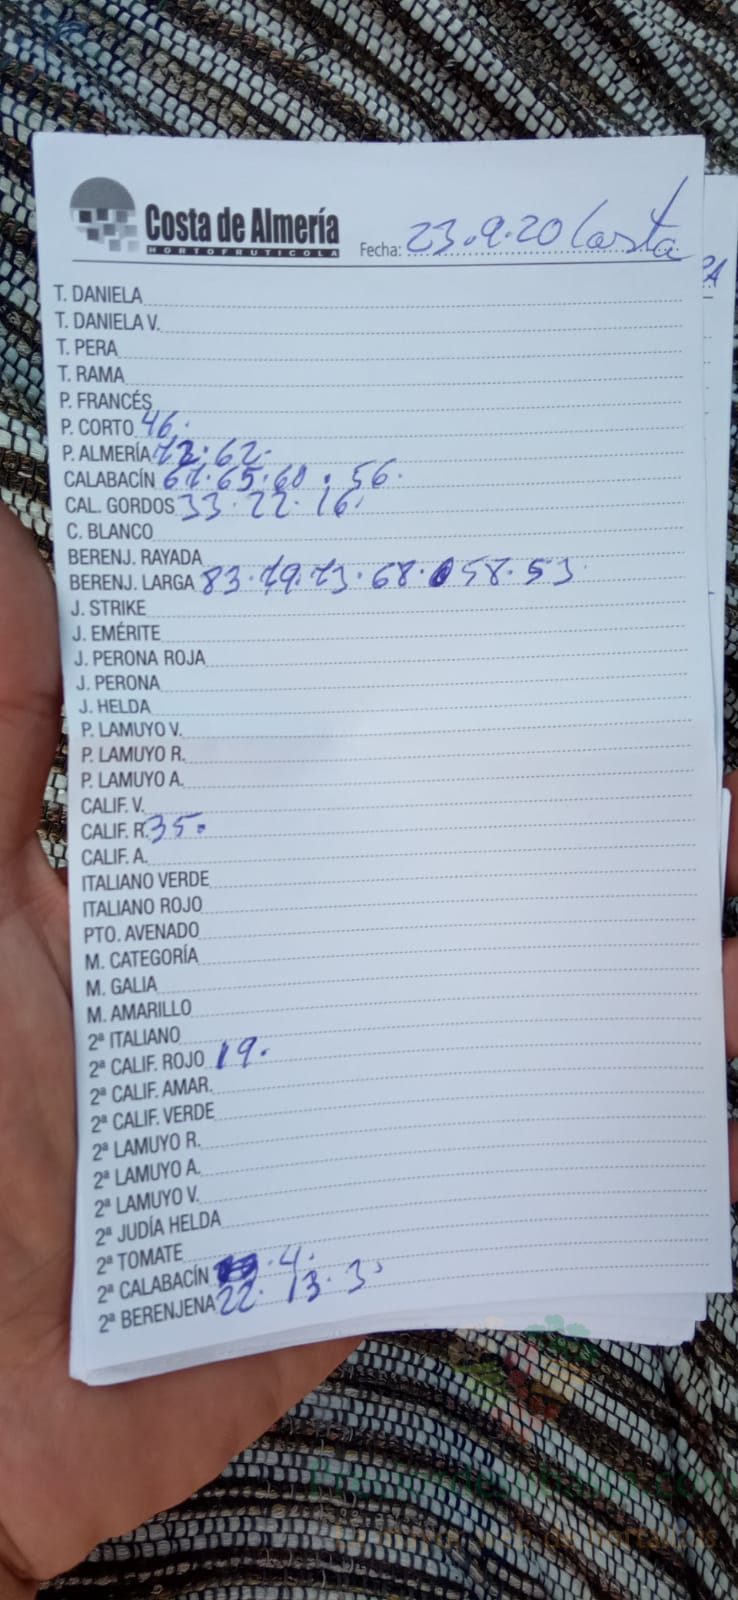 Costa de Almería
HORTOFRUTICOLA
Fecha: 23.9.20 Costa
T. DANIELA
T. DANIELA V.
T. PERA
T. RAMA
P. FRANCÉS
P. CORTO 46.
P. ALMERÍA 72. 62.
CALABACÍN 67. 65. 60. 56.
CAL. GORDOS 33. 22. 16.
C. BLANCO
BERENJ. RAYADA
BERENJ. LARGA 83. 79. 73. 68. 58. 53.
J. STRIKE
J. EMÉRITE
J. PERONA ROJA
J. PERONA
J. HELDA
P. LAMUYO V.
P. LAMUYO R.
P. LAMUYO A.
CALIF. V.
CALIF. R. 35.
CALIF. A.
ITALIANO VERDE
ITALIANO ROJO
PTO. AVENADO
M. CATEGORÍA
M. GALIA
M. AMARILLO
2ª ITALIANO
2ª CALIF. ROJO 19.
2ª CALIF. AMAR.
2ª CALIF. VERDE
2ª LAMUYO R.
2ª LAMUYO A.
2ª LAMUYO V.
2ª JUDÍA HELDA
2ª TOMATE
2ª CALABACÍN . 4.
2ª BERENJENA 22. 13. 3